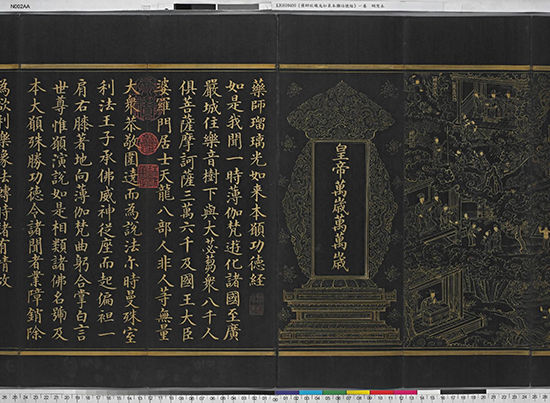 N002AA
皇帝萬歲萬萬歲
藥師瑠璃光如来本願功德經
如是我聞一時薄伽梵遊化諸國至廣
嚴城住樂音樹下與大苾蒭衆八千人
俱菩薩摩訶薩三萬六千及國王大臣
婆羅門居士天龍八部人非人等無量
大衆恭敬圍遶而為說法尒時曼殊室
利法王子承佛威神從座而起偏袒一
肩右膝著地向薄伽梵曲躬合掌白言
世尊惟願演說如是相類諸佛名號及
本大願殊勝功德令諸聞者業障銷除
為欲利樂像法轉時諸有情故